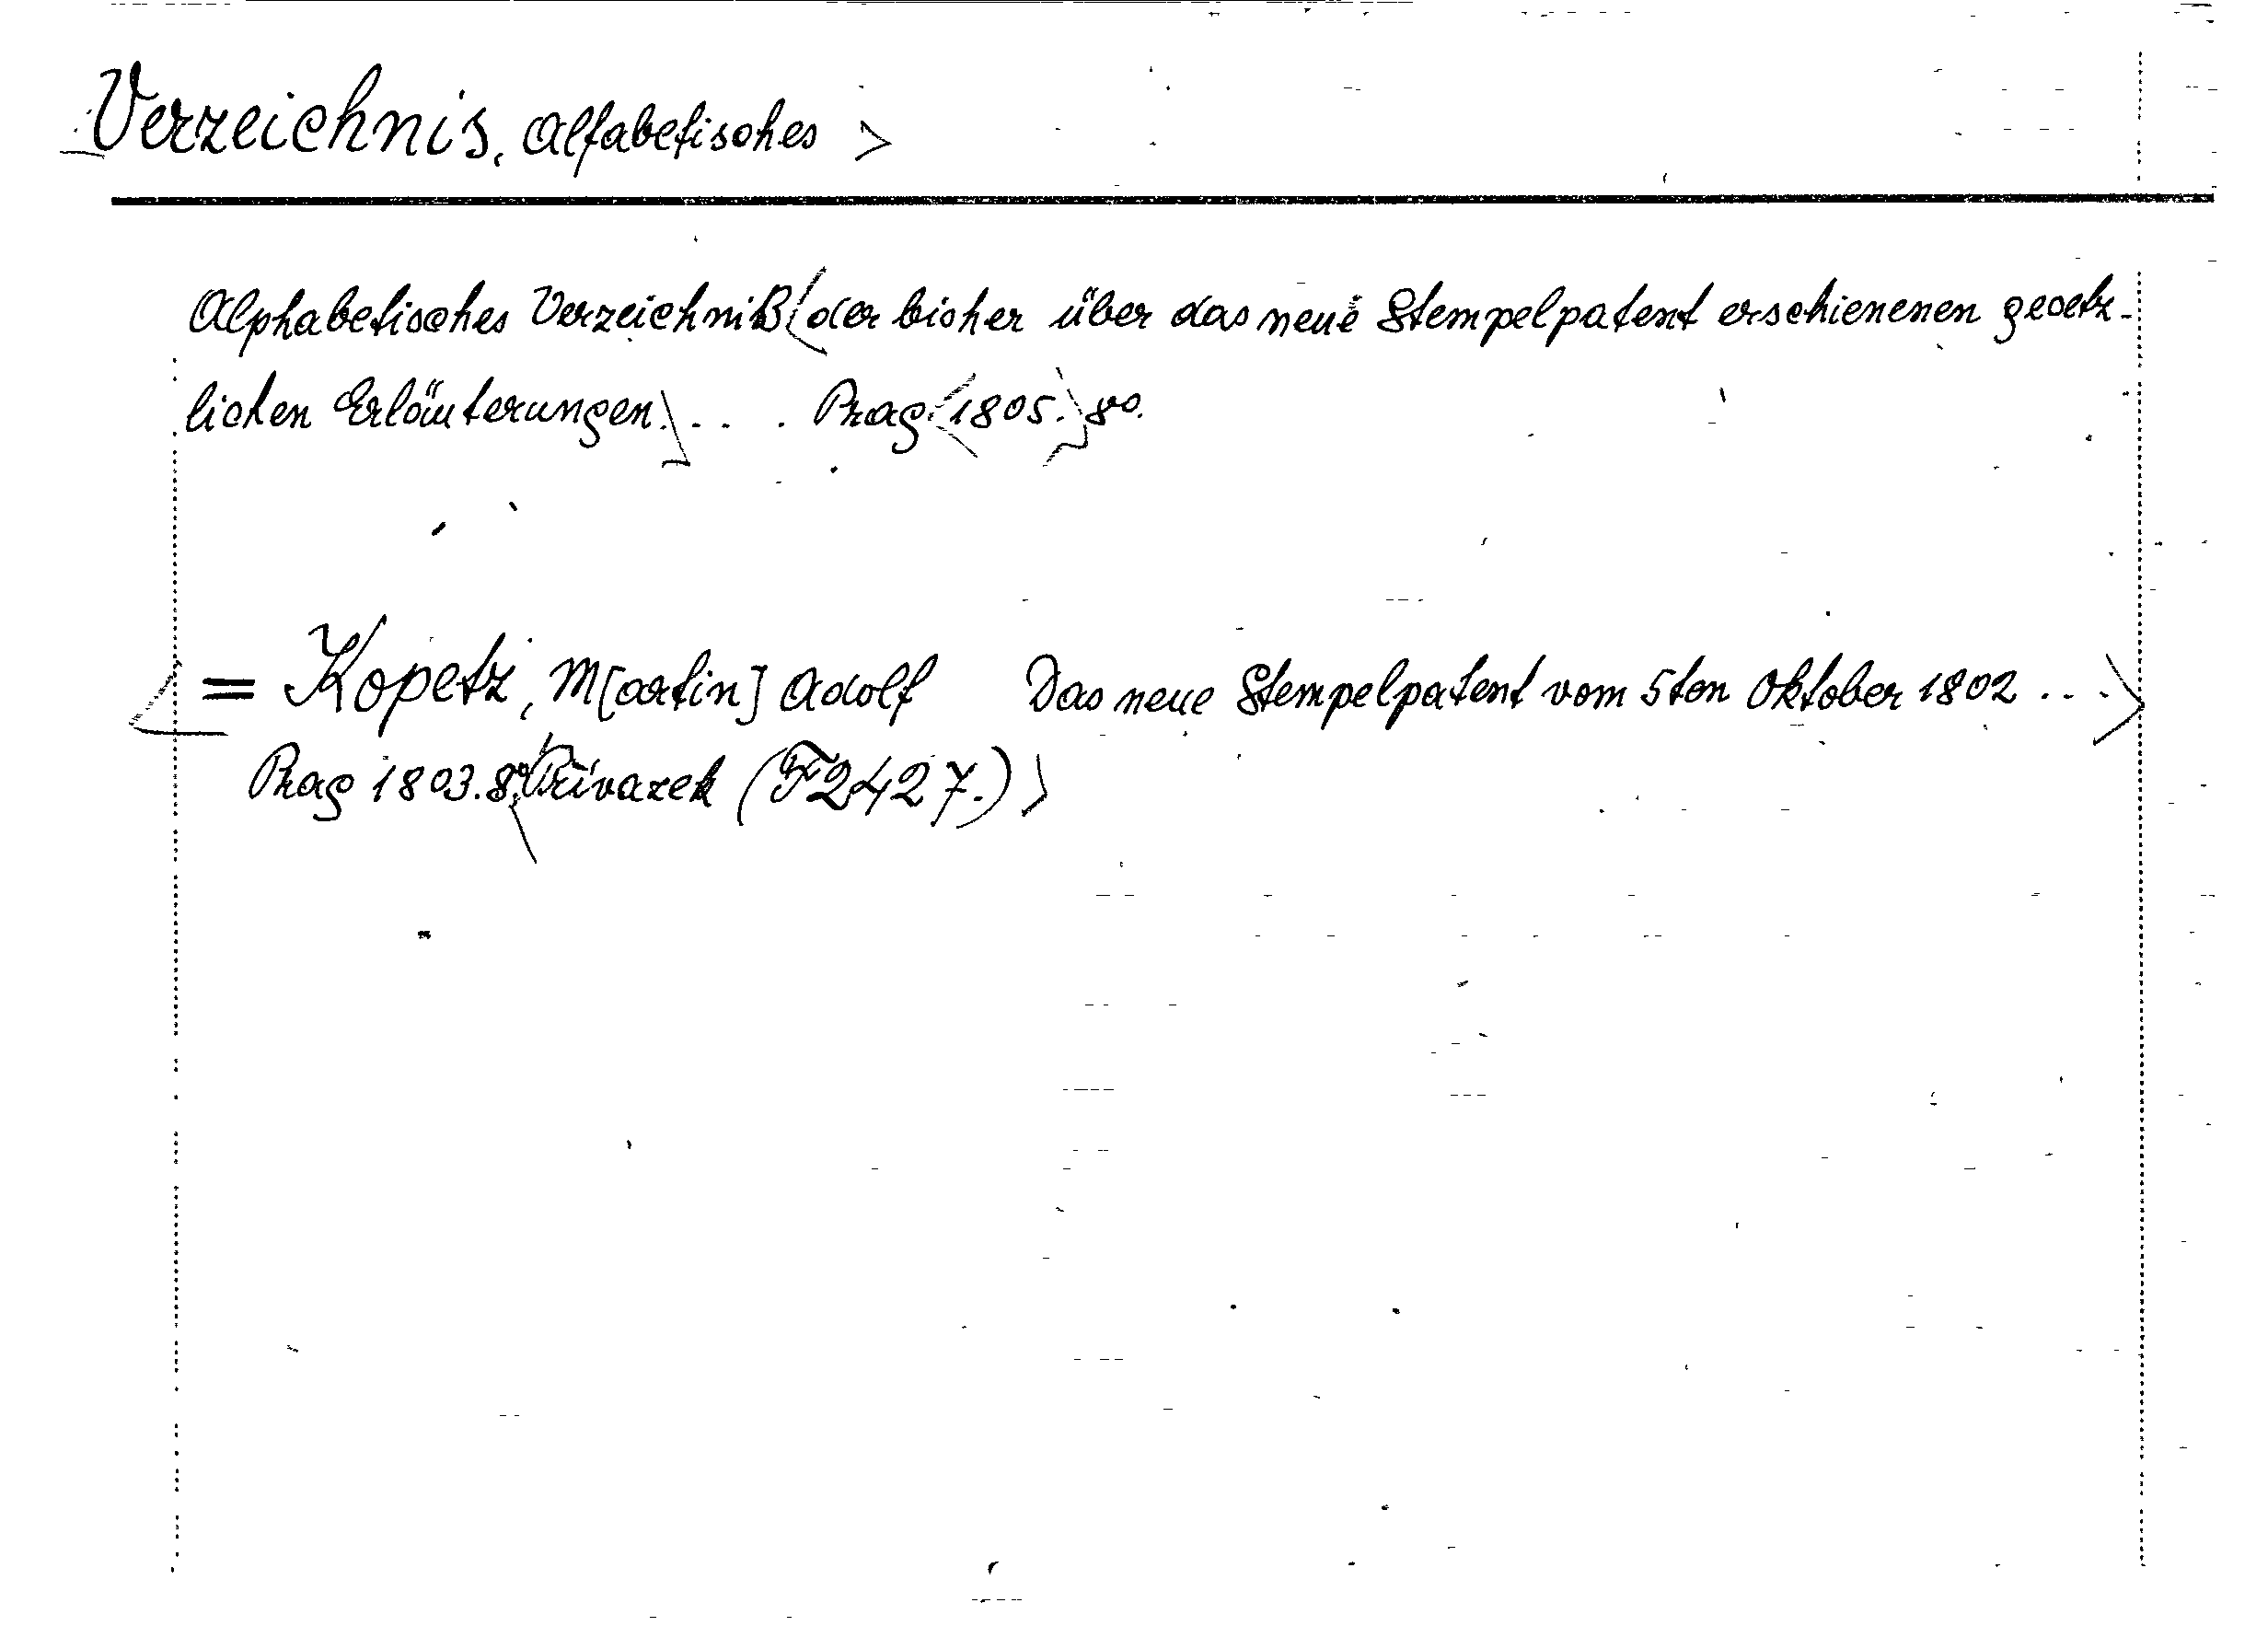 Verzeichnis, Alfabetisches >
Alphabetisches Verzeichniß <der bisher über das neue Stempelpatent erschienenen gesetz-
lichen Erläuterungen.> ... Prag <1805.> 8º.
< = Kopetz, M[artin] Adolf Das neue Stempelpatent vom 5ten Oktober 1802 ... >
Prag 1803. 8º. <Přívazek (F2427.)>